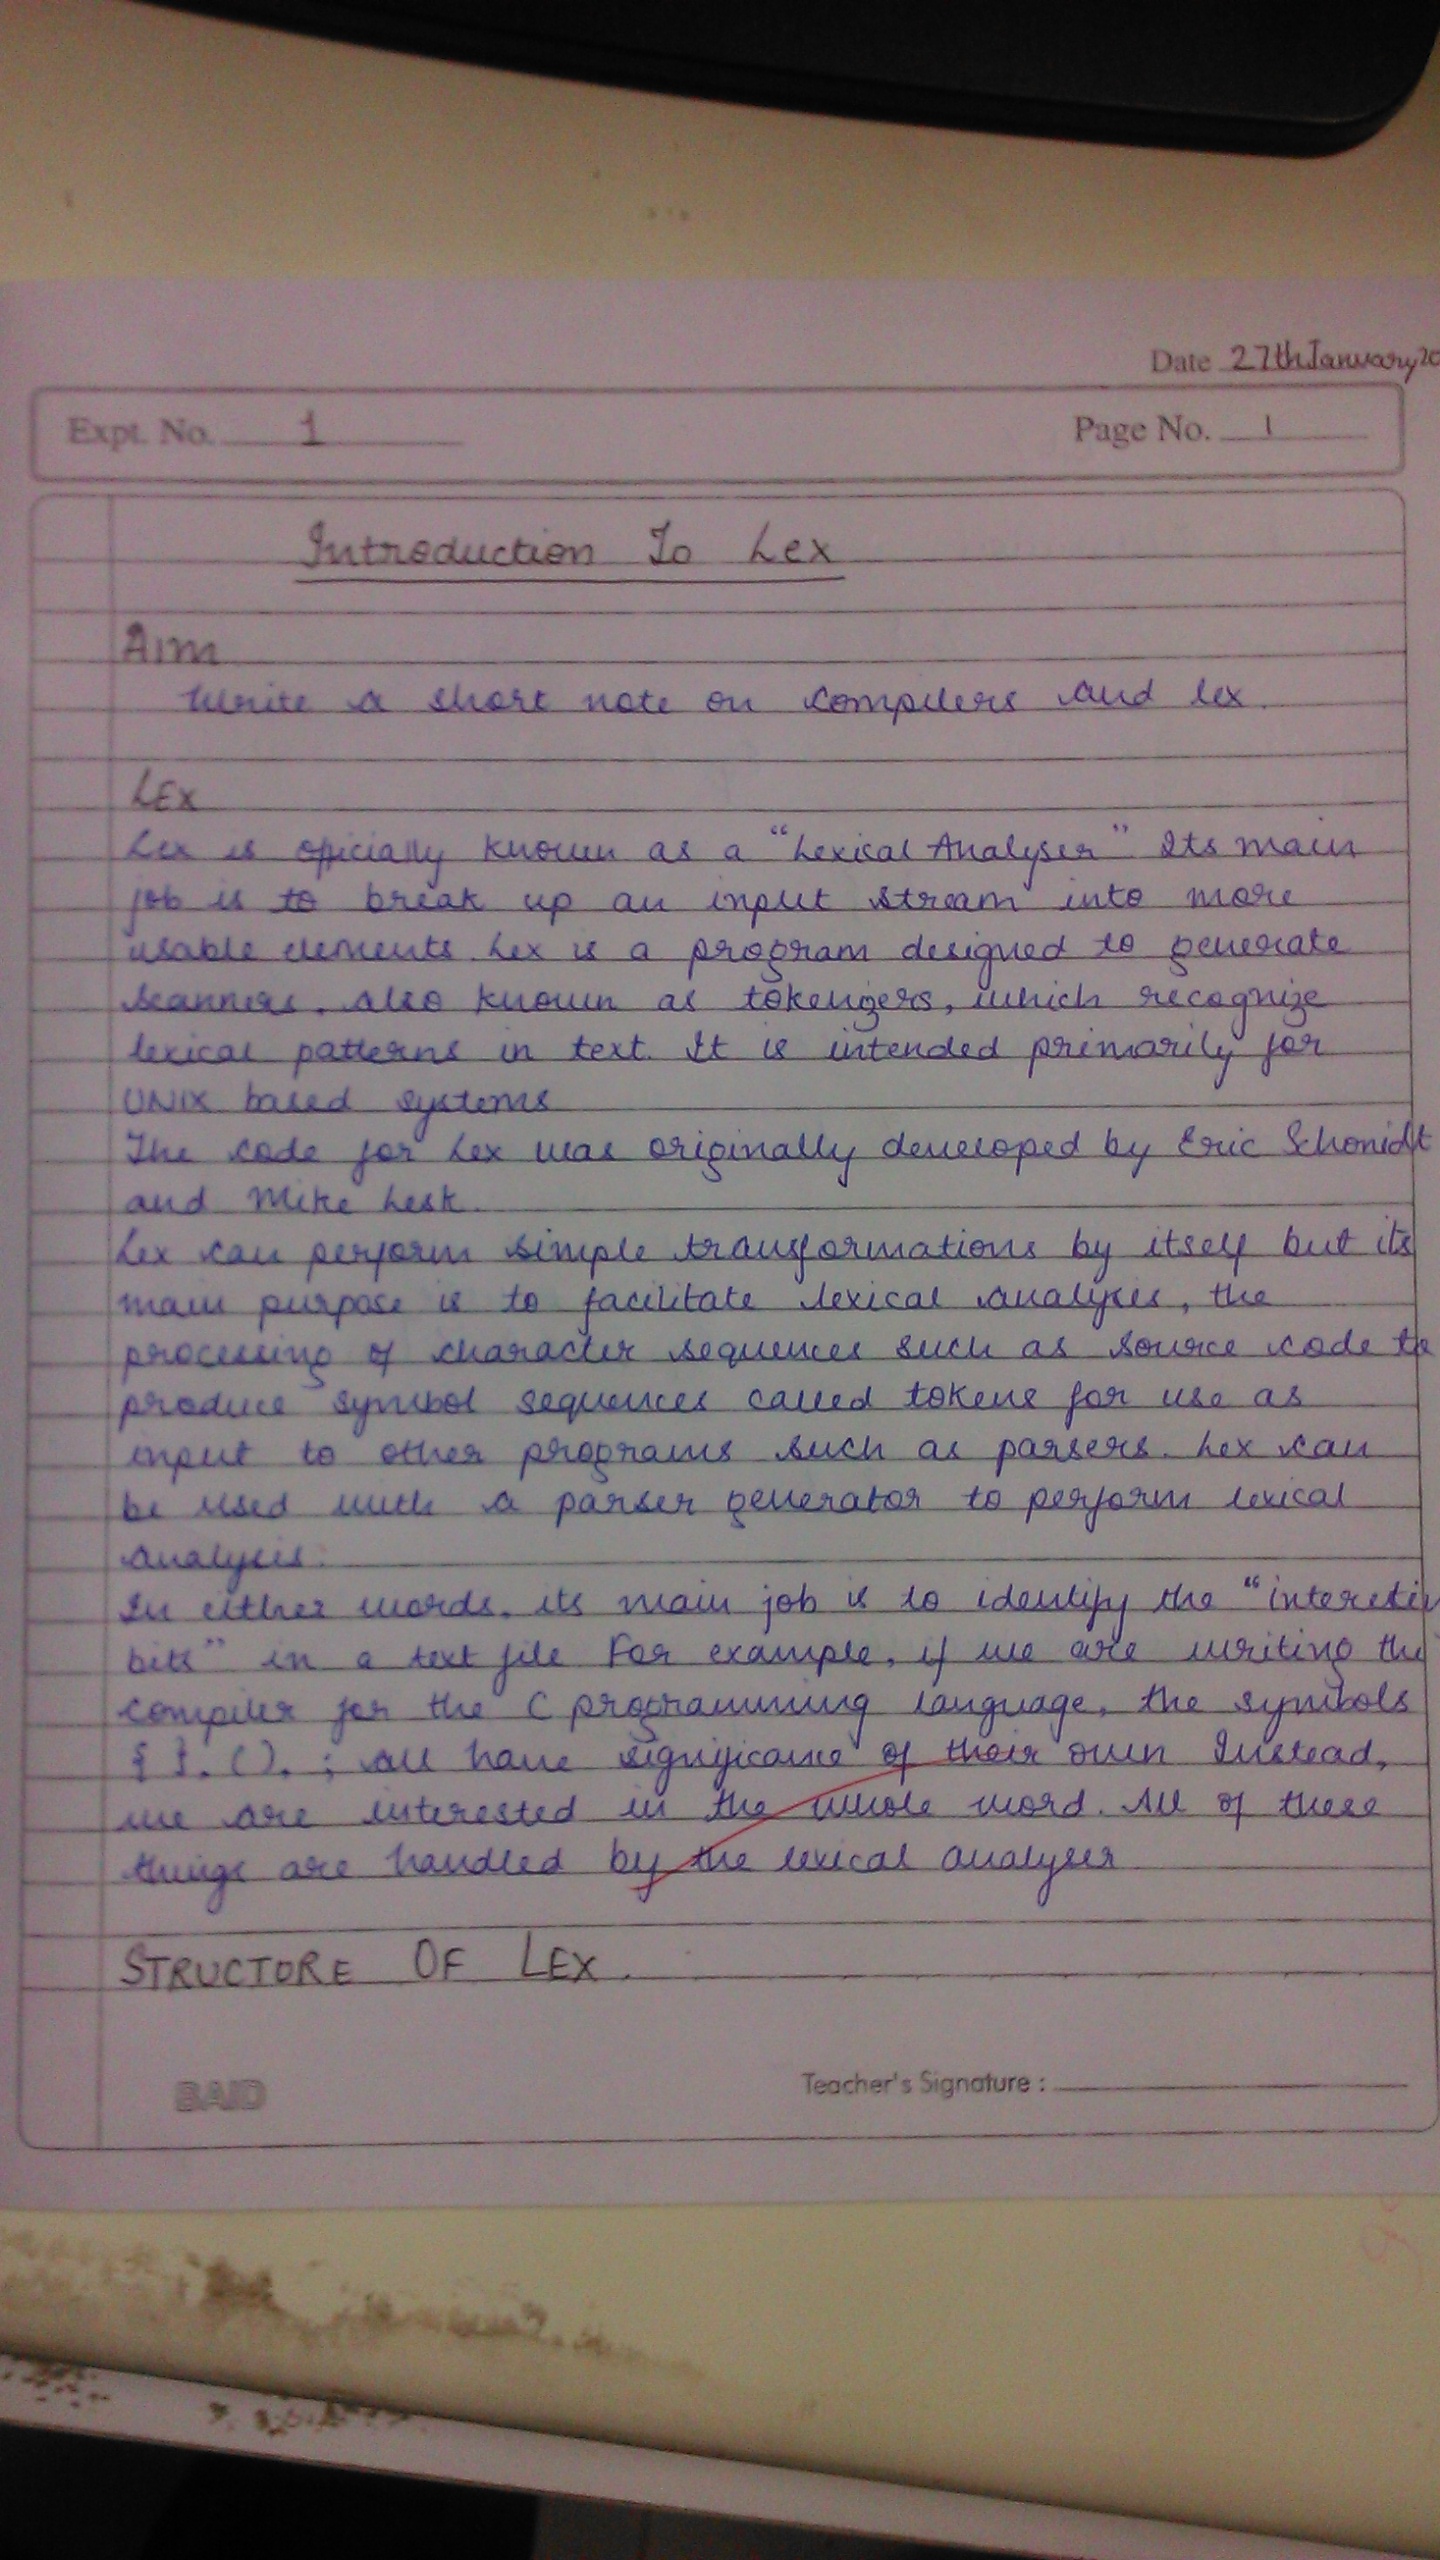 Date 27th January 20
Expt. No. 1
Page No. 1
Introduction To Lex
Aim
Write a short note on compilers and lex.
LEX
Lex is officially known as a "Lexical Analyser" Its main
job is to break up an input stream into more
usable elements. Lex is a program designed to generate
scanners, also known as tokenizers, which recognize
lexical patterns in text. It is intended primarily for
UNIX based systems
The code for Lex was originally developed by Eric Schomidt
and Mike Lesk.
Lex can perform simple transformations by itself but its
main purpose is to facilitate lexical analyses, the
processing of character sequences such as source code to
produce symbol sequences called tokens for use as
input to other programs such as parsers. Lex can
be used with a parser generator to perform lexical
analysis.
In either words, its main job is to identify the "interestin
bits" in a text file For example, if we are writing the
compiler for the C programming language, the symbols
{ }, ( ), ; all have significance of their own Instead,
we are interested in the whole word. All of these
things are handled by the lexical analyser
STRUCTORE OF LEX.
BAID
Teacher's Signature :